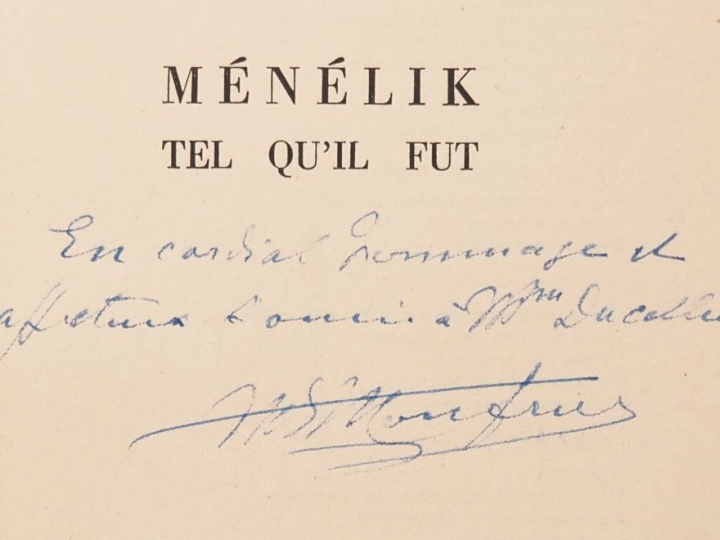 MÉNÉLIK
TEL QU'IL FUT
En cordial hommage et
affectueux souvenir à Mme
H de Monfreid